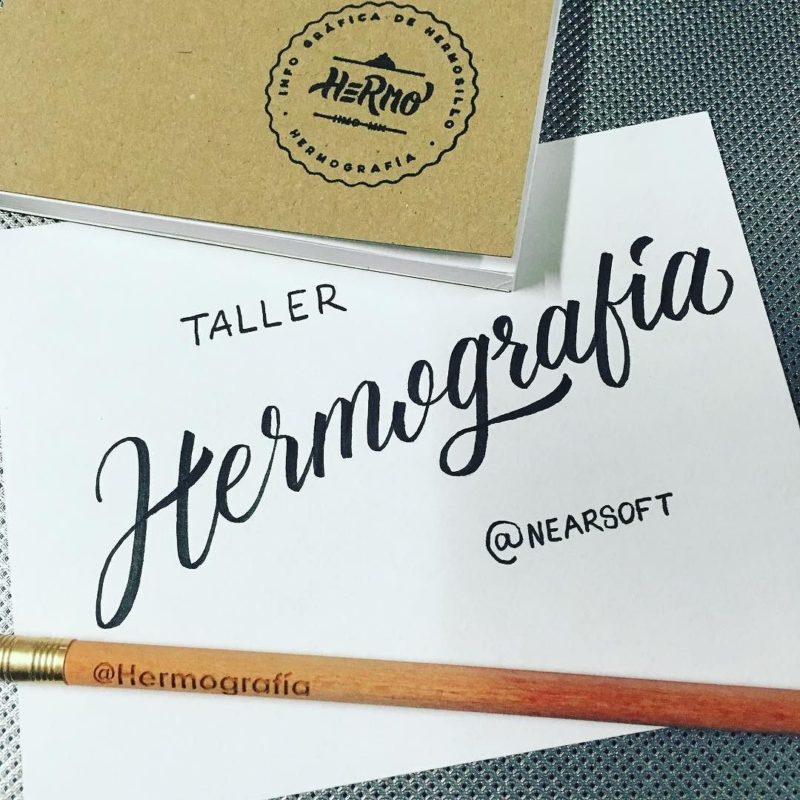 INFO GRÁFICA DE HERMOSILLO
HERMO
HMO MX
HERMOGRAFÍA
TALLER
Hermografía
@NEARSOFT
@Hermografía